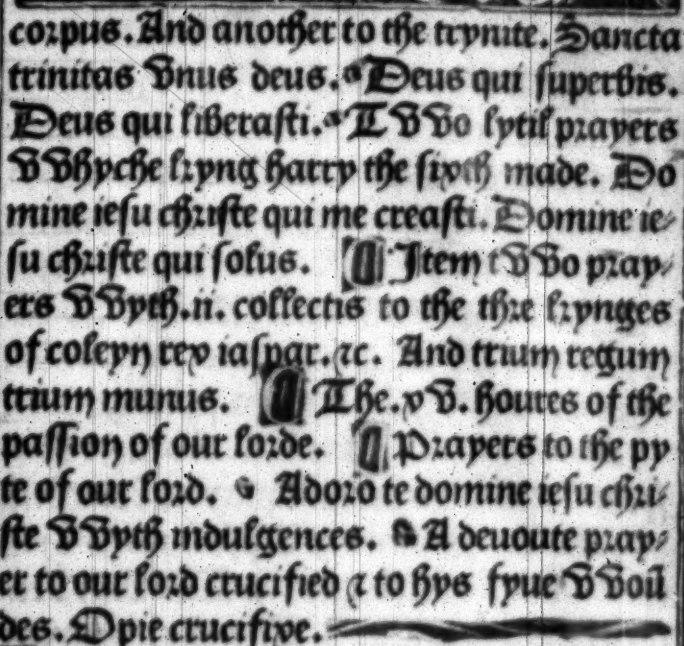 corpus. And another to the trynite. Sancta
trinitas Vnus deus. Deus qui superbis.
Deus qui liberasti. TVVo lytil prayers
VVhyche kyng harry the sixth made. Do
mine iesu christe qui me creasti. Domine ie⸗
su christe qui solus. ¶ Item tVVo pray⸗
ers VVyth .ii. collectis to the thre kynges
of coleyn rex iaspar. ⁊c. And trium regum
trium munus. ¶ The .xV. houres of the
passion of our lorde. ¶ Prayers to the py
te of our lord. Adoro te domine iesu chri⸗
ste VVyth indulgences. A deuoute pray⸗
er to our lord crucified ⁊ to hys fyue VVoū
des. O pie crucifixe.